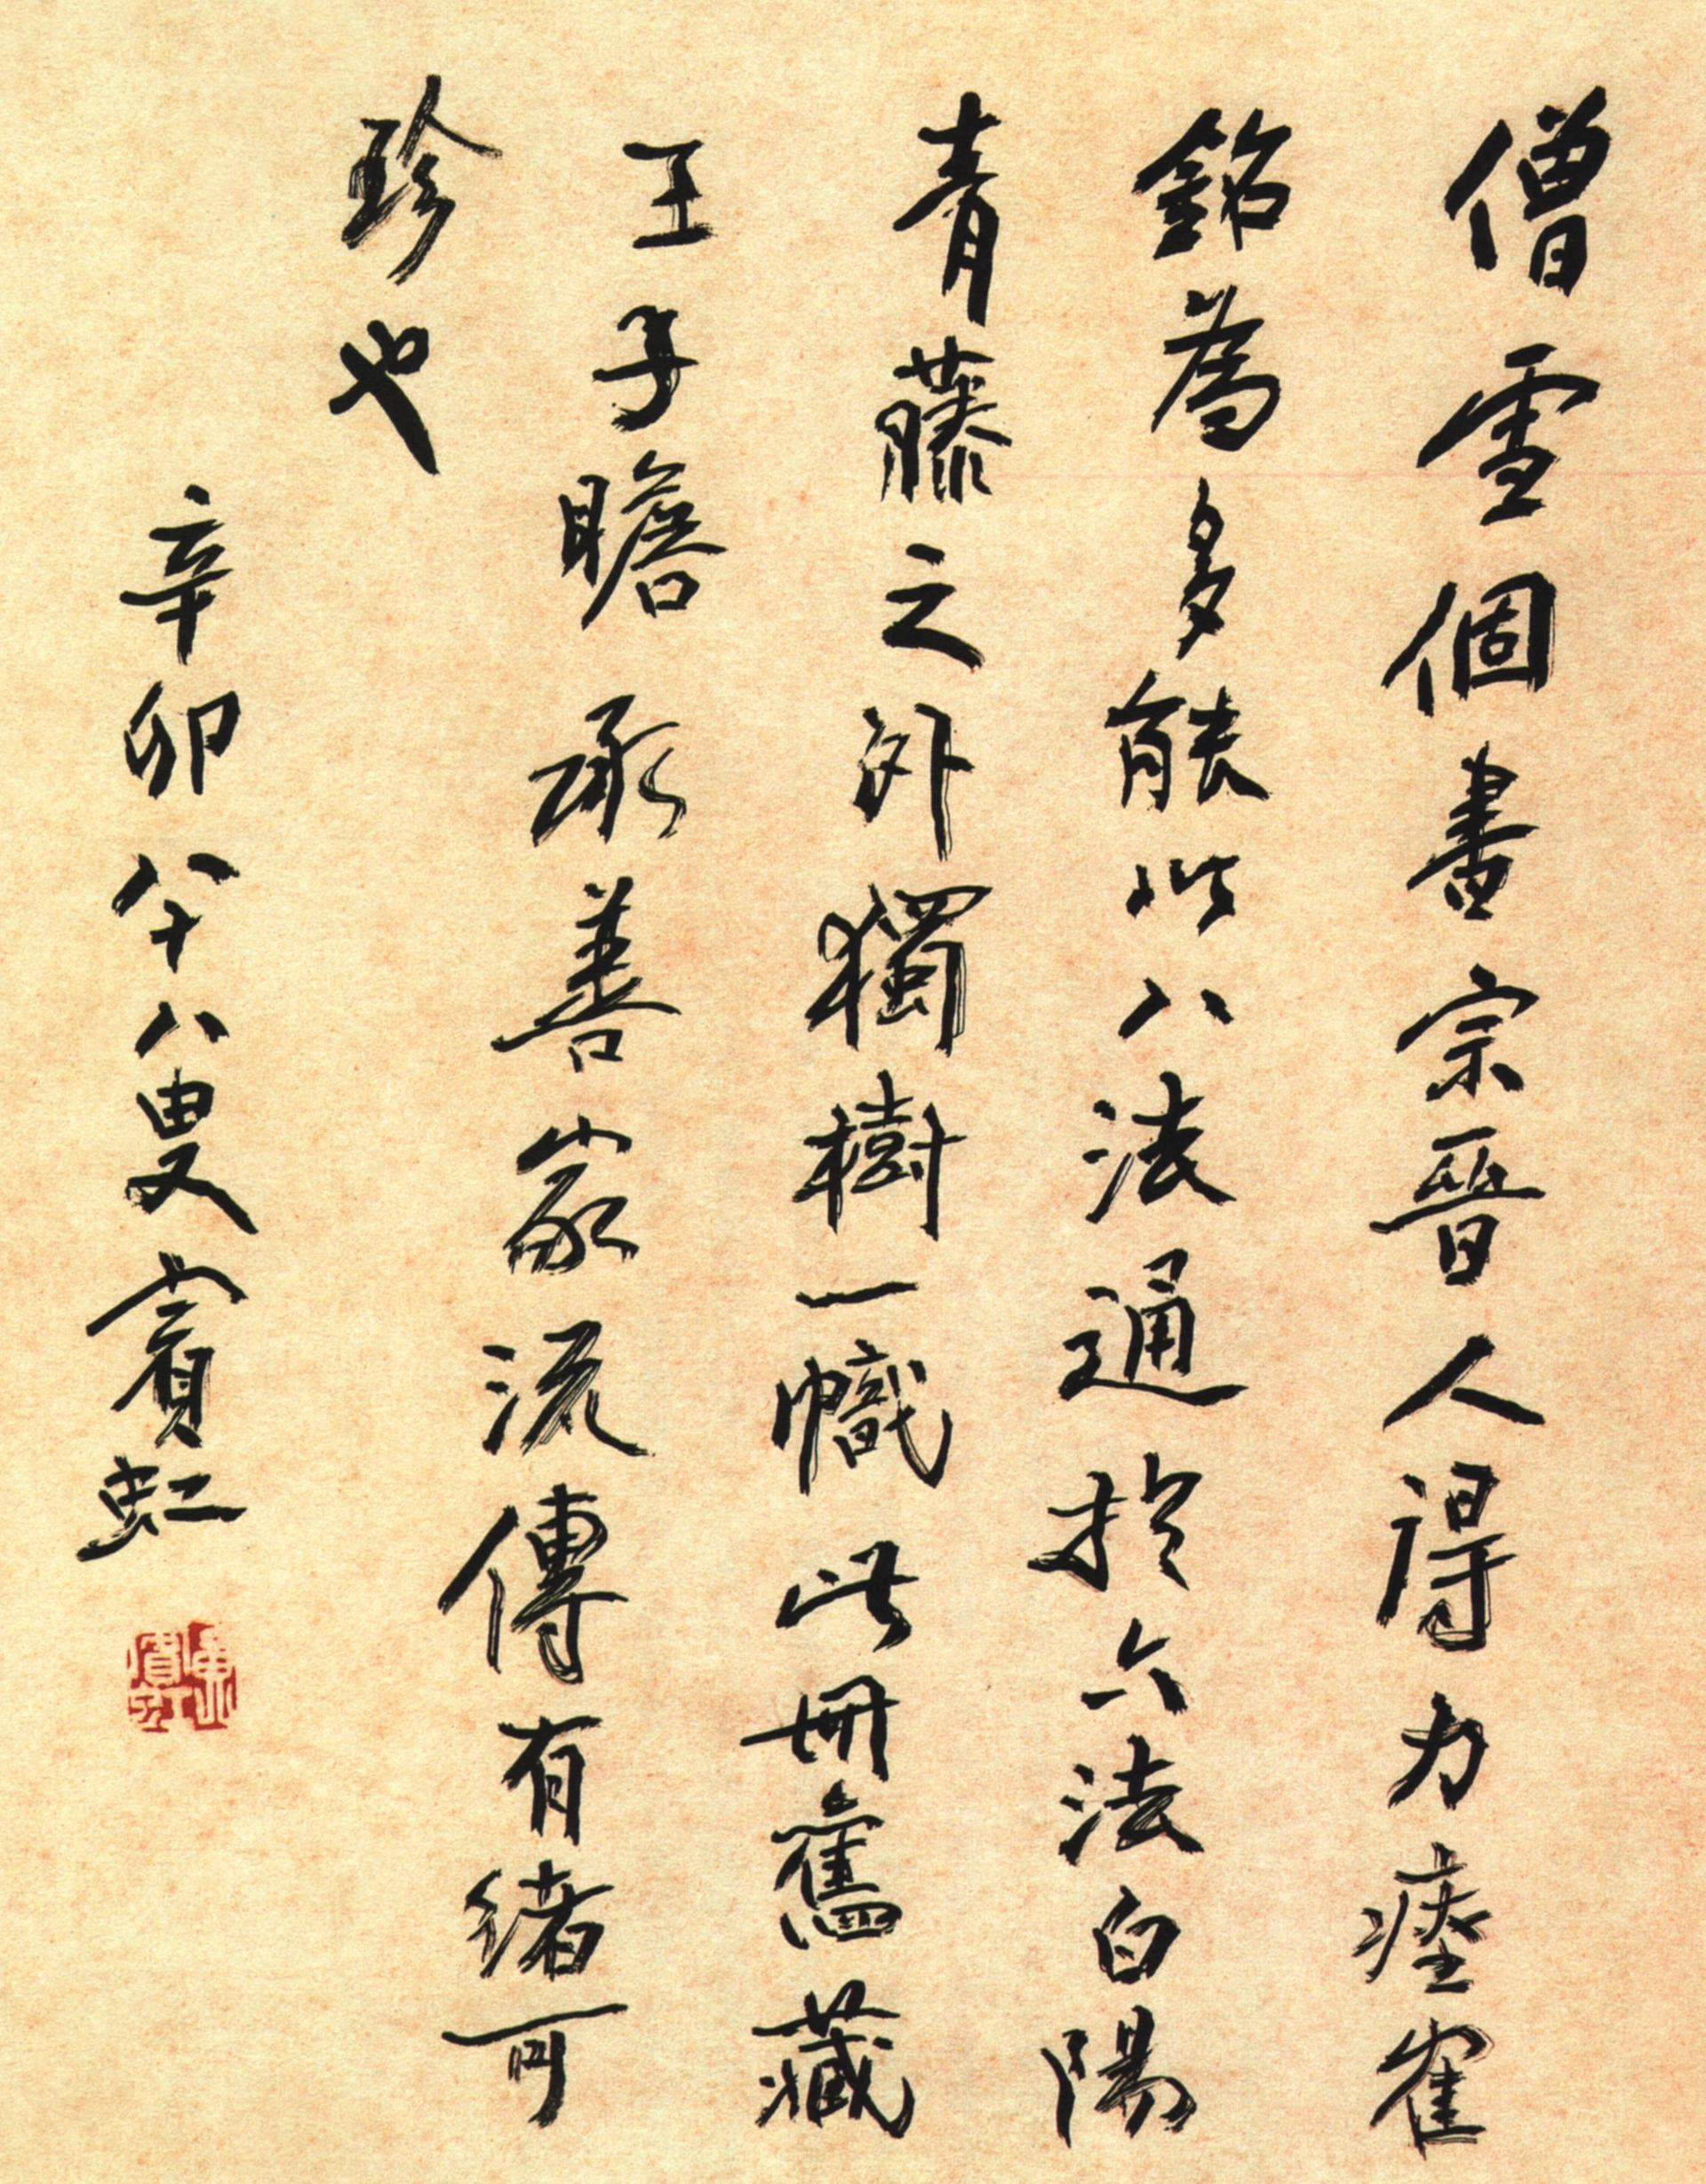 僧雪個書宗晉人得力瘞寉
銘爲多能以八法通於六法白陽
青藤之外獨樹一幟此冊舊藏
王子瞻承善家流傳有緒可
珍也
辛卯八十八叟賓虹